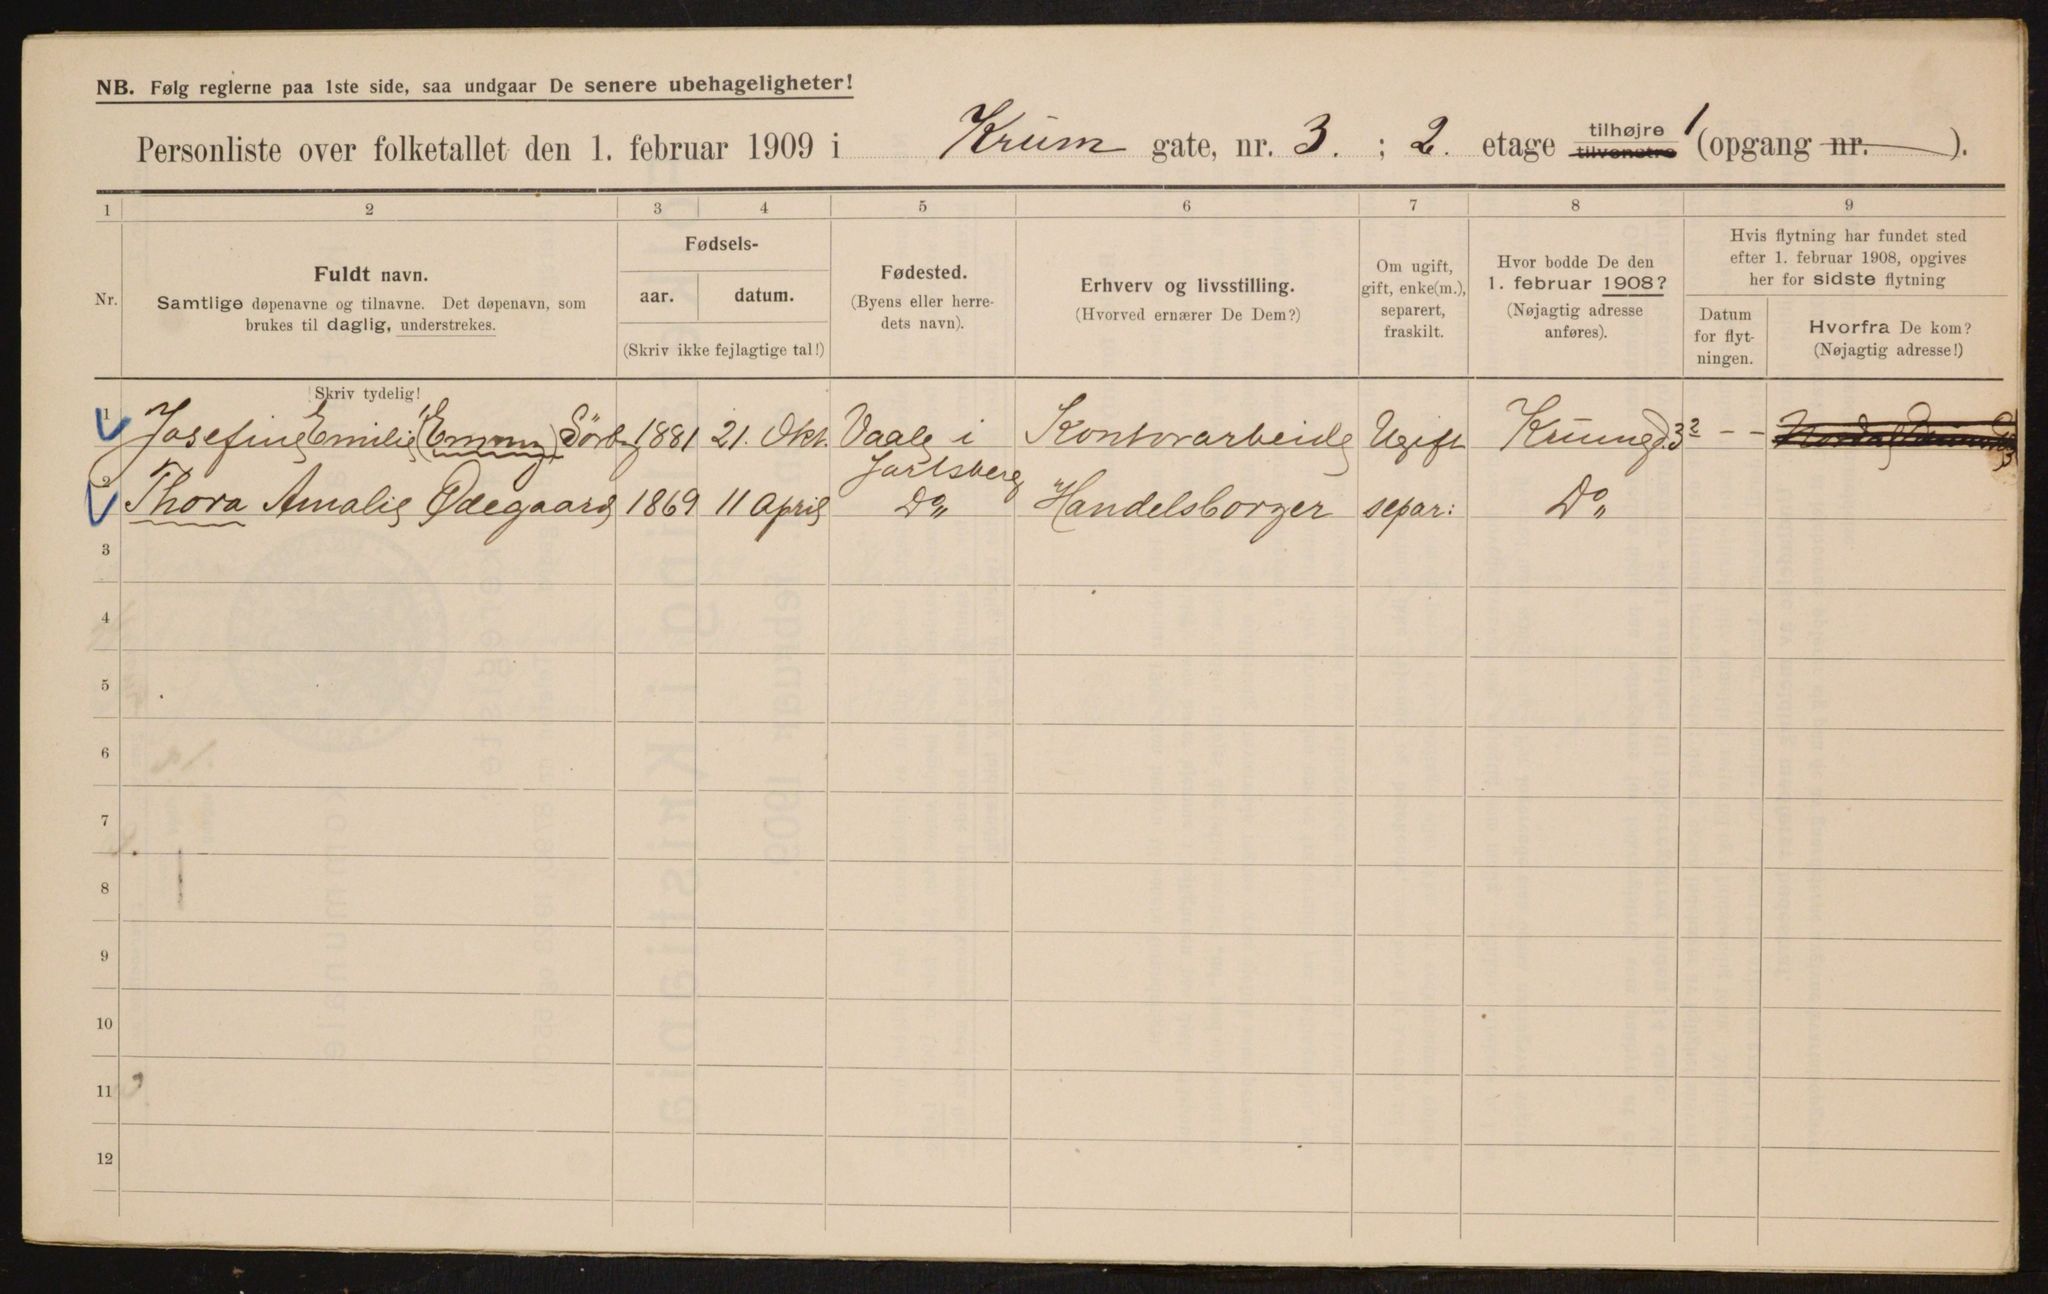 NB. Følg reglerne paa 1ste side, saa undgaar De senere ubehageligheter!
Personliste over folketallet den 1. februar 1909 i Krum gate, nr. 3. ; 2. etage tilhøjre tilvenstre 1 (opgang nr. ).
1 2 3 4 5 6 7 8 9
Nr.
Fuldt navn.
Samtlige døpenavne og tilnavne. Det døpenavn, som
brukes til daglig, understrekes.
Fødsels-
aar. datum.
(Skriv ikke fejlagtige tal!)
Fødested.
(Byens eller herre-
dets navn).
Erhverv og livsstilling.
(Hvorved ernærer De Dem?)
Om ugift,
gift, enke(m.),
separert,
fraskilt.
Hvor bodde De den
1. februar 1908?
(Nøjagtig adresse
anføres).
Hvis flytning har fundet sted
efter 1. februar 1908, opgives
her for sidste flytning
Datum
for flyt-
ningen.
Hvorfra De kom?
(Nøjagtig adresse!)
Skriv tydelig!
1 Josefine Emilie (Emmy) Sörby 1881 21. Okt. Vaale i Jarlsberg Kontorarbeide Ugift Krumgd. 3 2 - -
2 Thora Amalie Ødegaard 1869 11 April Do" Handelsborger separ: Do"
3
4
5
6
7
8
9
10
11
12